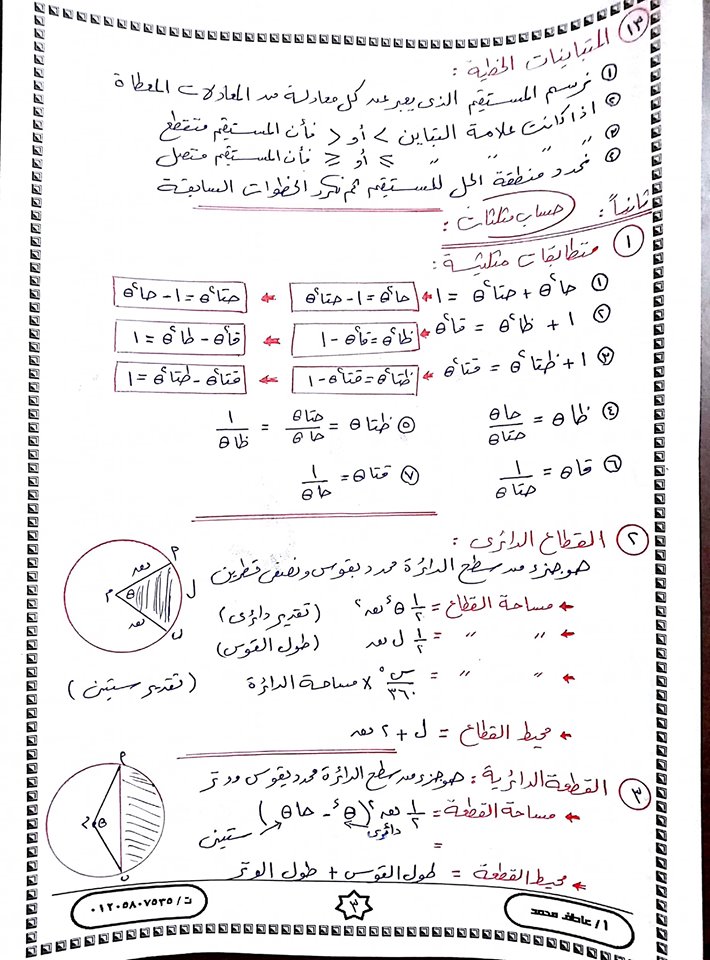 ١٣ المتباينات الخطية :
١ نرسم المستقيم الذى يعبر عن كل معادلة من المعادلات المعطاة
٢ اذا كانت علامة التباين > أو < فأن المستقيم متقطع
٣ " " " ≥ أو ≤ فأن المستقيم متصل
٤ نحدد منطقة الحل للمستقيم ثم نكرر الخطوات السابقة
ثانياً : حساب مثلثات :
١ متطابقات مثلثية :
١ حا²θ + حتا²θ = ١ ← حا²θ = ١ - حتا²θ ← حتا²θ = ١ - حا²θ
٢ ١ + ظا²θ = قا²θ ← ظا²θ = قا²θ - ١ ← قا²θ - ظا²θ = ١
٣ ١ + ظتا²θ = قتا²θ ← ظتا²θ = قتا²θ - ١ ← قتا²θ - ظتا²θ = ١
٤ ظاθ = حاθ/حتاθ ٥ ظتاθ = حتاθ/حاθ = ١/ظاθ
٦ قاθ = ١/حتاθ ٧ قتاθ = ١/حاθ
٢ القطاع الدائرى :
هو جزء من سطح الدائرة محدد بقوس ونصف قطرين
← مساحة القطاع = ١/٢ θء نق٢ (تقدير دائرى)
← " " = ١/٢ ل نق (طول القوس)
← " " = س°/٣٦٠ × مساحة الدائرة (تقدير ستين)
← محيط القطاع = ل + ٢ نق
م θ نق نق ل ب م
٣ القطعة الدائرية : هو جزء من سطح الدائرة محدد بقوس ووتر
← مساحة القطعة = ١/٢ نق٢ (θء - حاθ) ستين
دائرى
=
← محيط القطعة = طول القوس + طول الوتر
م θ ب
أ / عاطف محمد
٣
ت / ٠١٢٠٥٨٠٧٥٣٥